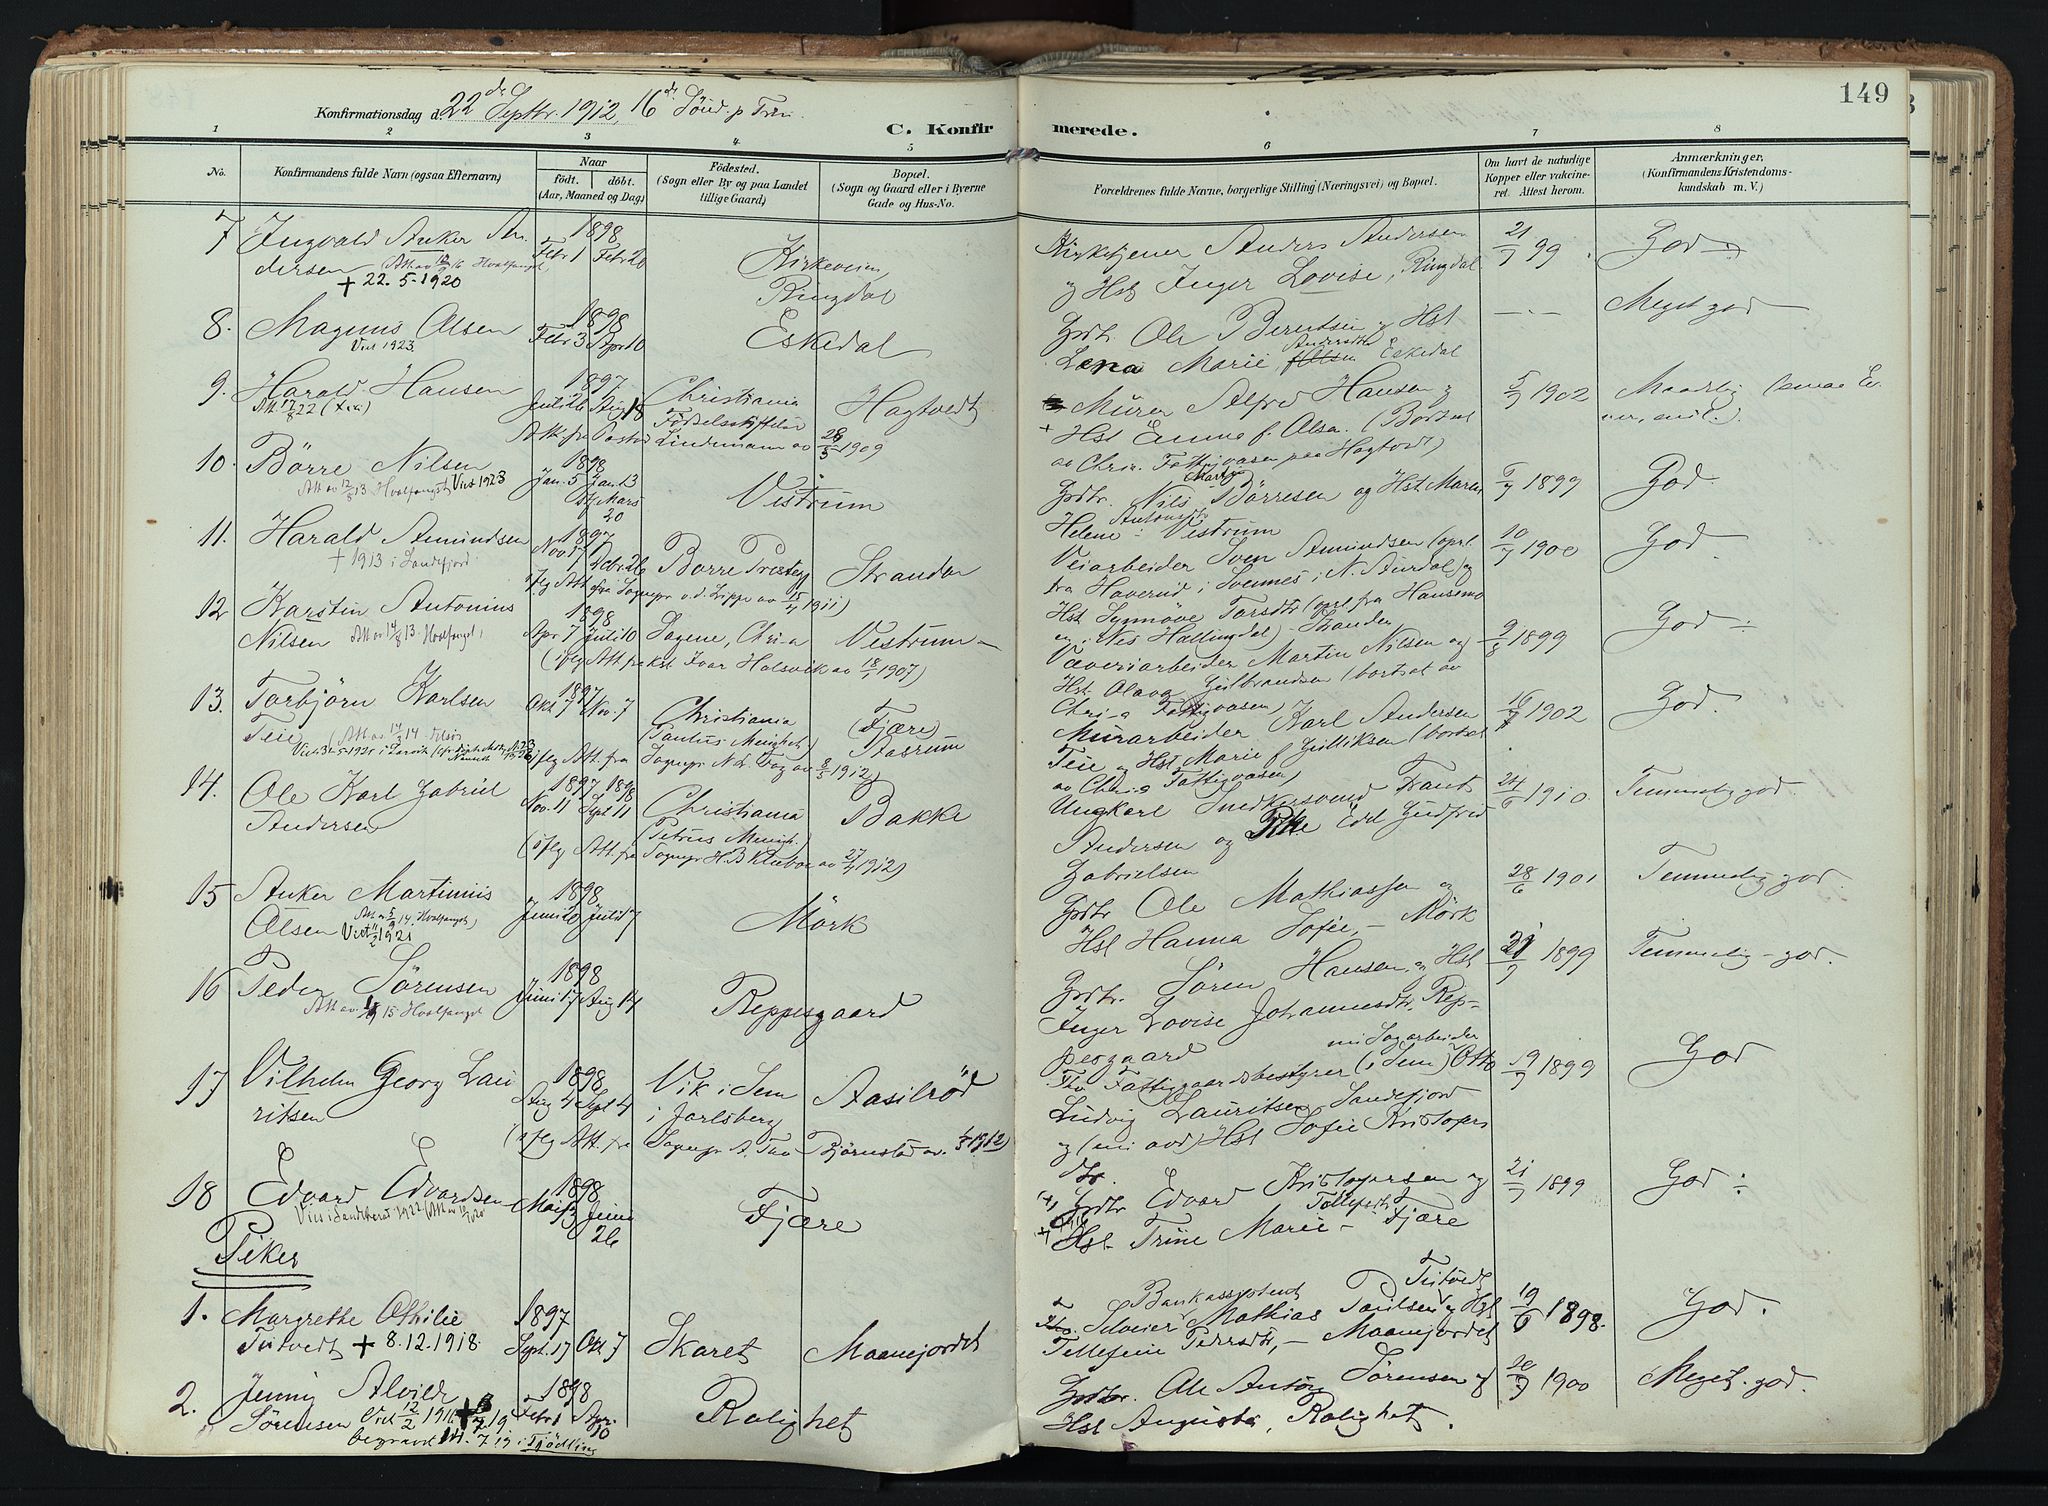 149
Konfirmationsdag d. 22de Septbr. 1912, 16de Sönd. p. Trin.
C. Konfirmerede.
1 2 3 4 5 6 7 8
No.
Konfirmandens fulde Navn (ogsaa Efternavn)
Naar
födt. döbt.
(Aar, Maaned og Dag)
Födested.
(Sogn eller By og paa Landet
tillige Gaard)
Bopæl.
(Sogn og Gaard eller i Byerne
Gade og Hus-No.
Forældrenes fulde Navne, borgerlige Stilling (Næringsvei) og Bopæl.
Om havt de naturlige
Kopper eller vakcine-
ret. Attest herom.
Anmærkninger.
(Konfirmandens Kristendoms-
kundskab m. V.)
7 Ingvald Anker An-
dersen
Hvalfangst
+ 22.5-1920
1898
Febr 1 Febr 20
Kirkeveien,
Ringdal
Kirketjener Anders Andersen
og Hst. Inger Lovise, Ringdal
21/7 99
God
8. Magnus Olsen
Viet 1923
1898
Febr 3 Apr 10
Eskedal
Grdbr. Ole Berntsen og Hst
Lena Marie Andersdtr Eskedal
Meget god
9. Harald Hansen
1897
Juli 26 Aug 18
Christiania
Fødselsstiftelse
Hagtvedt
Att. fra Pastor Lindemann av 28/5 1909
Murer Alfred Hansen og
+ Hst Emma f. Olsen (Bortsat
av Chr.a Fattigvæsen paa Hagtvedt)
5/7 1902
Maadelig
10. Börre Nilsen
Att av 12/8 13 Hvalfangst Viet 1923
1898
Jan. 5 Jan. 23
Mars
20
Vestrum
Grdbr. Nils Martin Börresen og Hst. Maren
Helene Antonsdtr Vestrum
6/7 1899
God
11. Harald Amundsen
+ 1913 i Sandefjord
1897
Borre Prestegj
Stranden
iflg Att. fra Sognepr v.d. Lippe av 15/4 1911)
Veiarbeider Sven Amundsen (opr.
fra Haverud i Svennes i N. Aurdal) og
Hst Synnöve Torsdtr (opr. fra Hansemo
i Nes Hallingdal) - Stranden
10/7 1900
God
12 Karstin Antonius
Nilsen Att av 14/8 13. Hvalfangst,
1898
Apr 7 Juli 10
Sagene, Chr-a
Vestrum
(iflg Att fra kst Ivar Halsvik av 18/1 1907)
Væveriarbeider Martin Nilsen og
Hst Olava Gulbrandsen (bortsat av
Chr-a Fattigvæsen)
9/8 1899
God
13. Torbjörn Karlsen
Teie
1897
Okt 7 Nov. 7
Christiania
(Paulus Menighet)
(Fjære)
Aasrum
iflg Att. fra Sognepr N. Dr. Dag av 8/5 1912)
Murarbeider Karl Andersen
Teie og Hst Marie f. Gulliksen (bortsat
av Chr-a Fattigvæsen)
1902
God.
14. Ole Karl Gabriel
Andersen
1897 1898
Nov. 11 Sept 11
Christiania
(Petrus Menigh.
Bakke
(iflg Att. fra Sognepr H. B Kluboe av 27/4 1912)
Ungkarl Snedkersvend Frants
Andersen og Pike Edel Gudfrid
Gabrielsen
24/6 1910
Temmelig god.
15 Anker Martinius
Olsen Viet 11/2 1921
Att av 5/9 14. Hvalfangst)
1898
Juni 20 Juli 17
Mörk
Grdbr Ole Mathiassen og
Hst Hanna Sofie, - Mörk
28/6 1901
Temmelig god.
16 Peder Sörensen
15 Hvalfangst
1898
Juni 17 Aug 14
Reppesgaard
Grdbr. Sören Hansen og Hst
Inger Lovise Johannesdtr. Rep-
pesgaard
1899
Temmelig god.
17 Vilhelm Georg Lau
ritsen
1898
Aug 4 Sept 4
Vik i Sem
i Jarlsberg
Aasilröd
(iflg Att. fra Sognepr. A. Tao Bjørnstad av 1/3 1912)
Fhv Fattiggaardsbestyrer (i Sem) nu Sagarbeider Otto
Ludvig Lauritsen Sandefjord
og (nu avd) Hst Sofie Kristofers
dtr.
19/7 1899
God
18 Edvard Edvardsen
Viet i Sandeherat 1922
1898
Juni
26
Fjære
Grdbr Edvard Kristofersen og
Hst Trine Marie Tollefsdtr - Fjære
21/7 1899
God
Piker
1. Margrethe Othilie
Tutvedt + 8.12.1918.
1897
Sept. 17 Okt 7
Skaret
Maanejordet
Bankassistent
Selveier Mathias Paulsen Tutvedt og Hst
Tellefine Pedersdtr, - Maanejordet
19/6 1898.
God.
2. Jenny Alvilde
Sörensen Viet 12/2 1916
begravet 14.-7.19 i Fjödling
1898
Febr 1 Apr. 10
Rolighet
Grdbr. Ole Anton Sörensen og
Hst Augusta, Rolighet.
20/7 1900
Meget god.